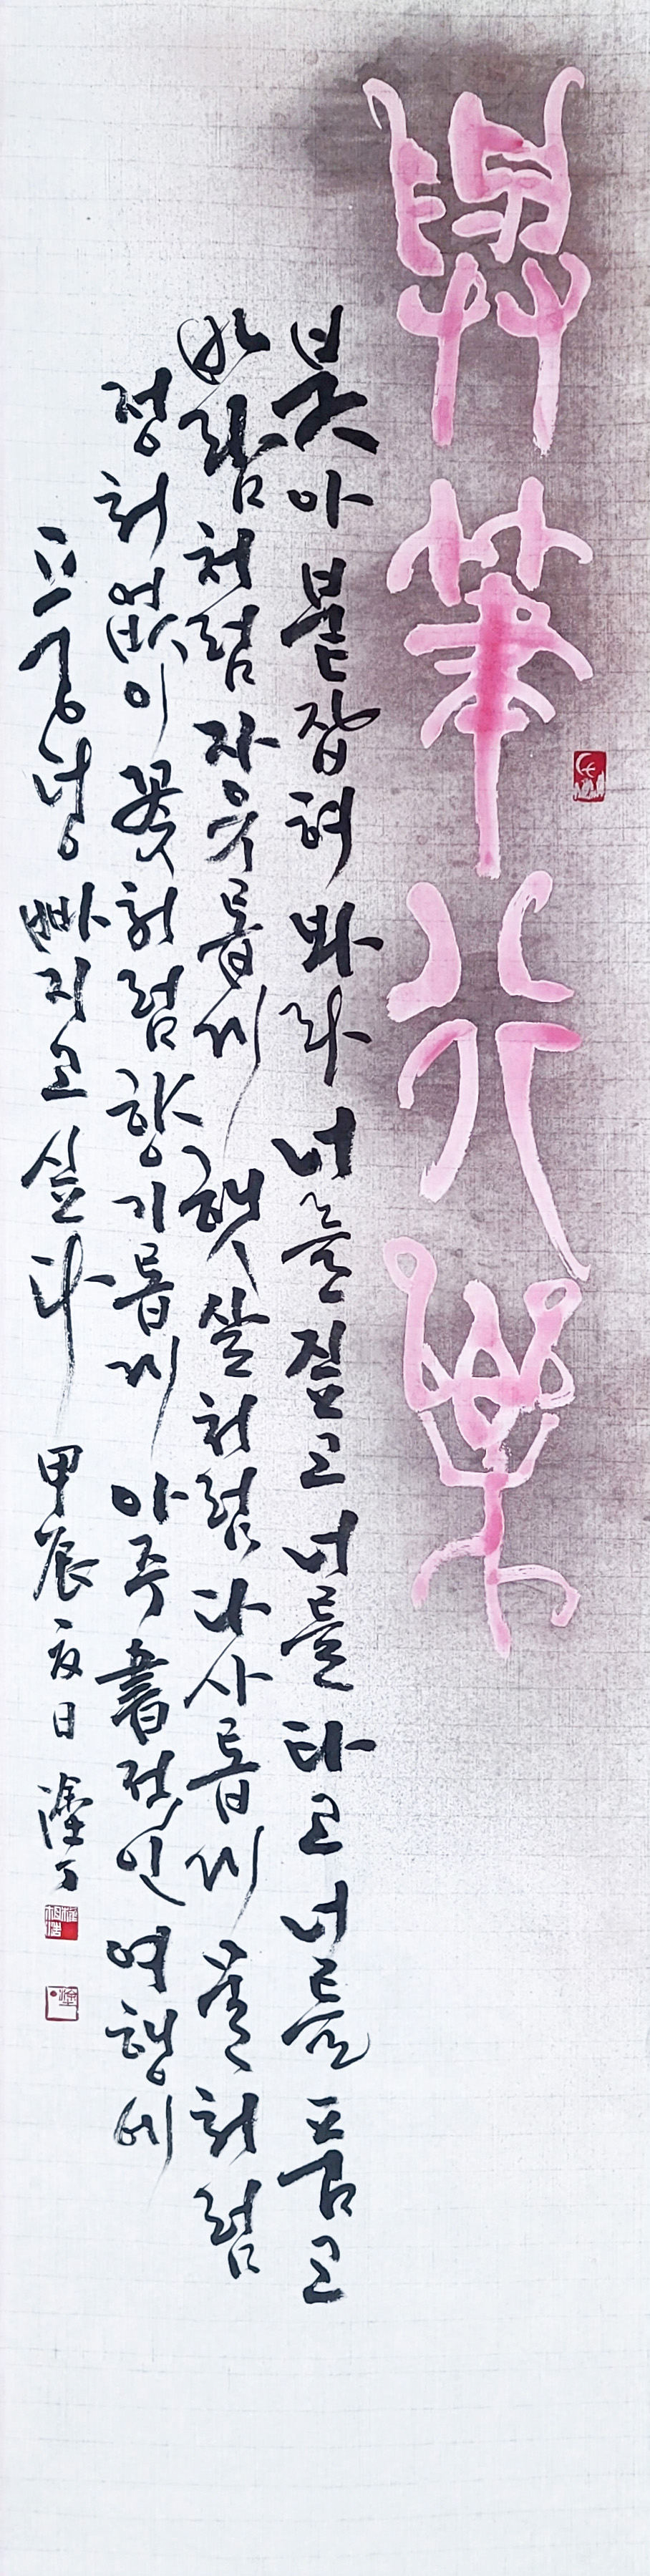 與筆行樂
붓아 붙잡혀 봐라 너를 짚고 너를 타고 너를 품고
바람처럼 자유롭게 햇살처럼 다사롭게 물처럼
정처없이 꽃처럼 향기롭게 아주 書적인 여행에
풍덩 빠지고 싶다 甲辰 夏日 塗丁